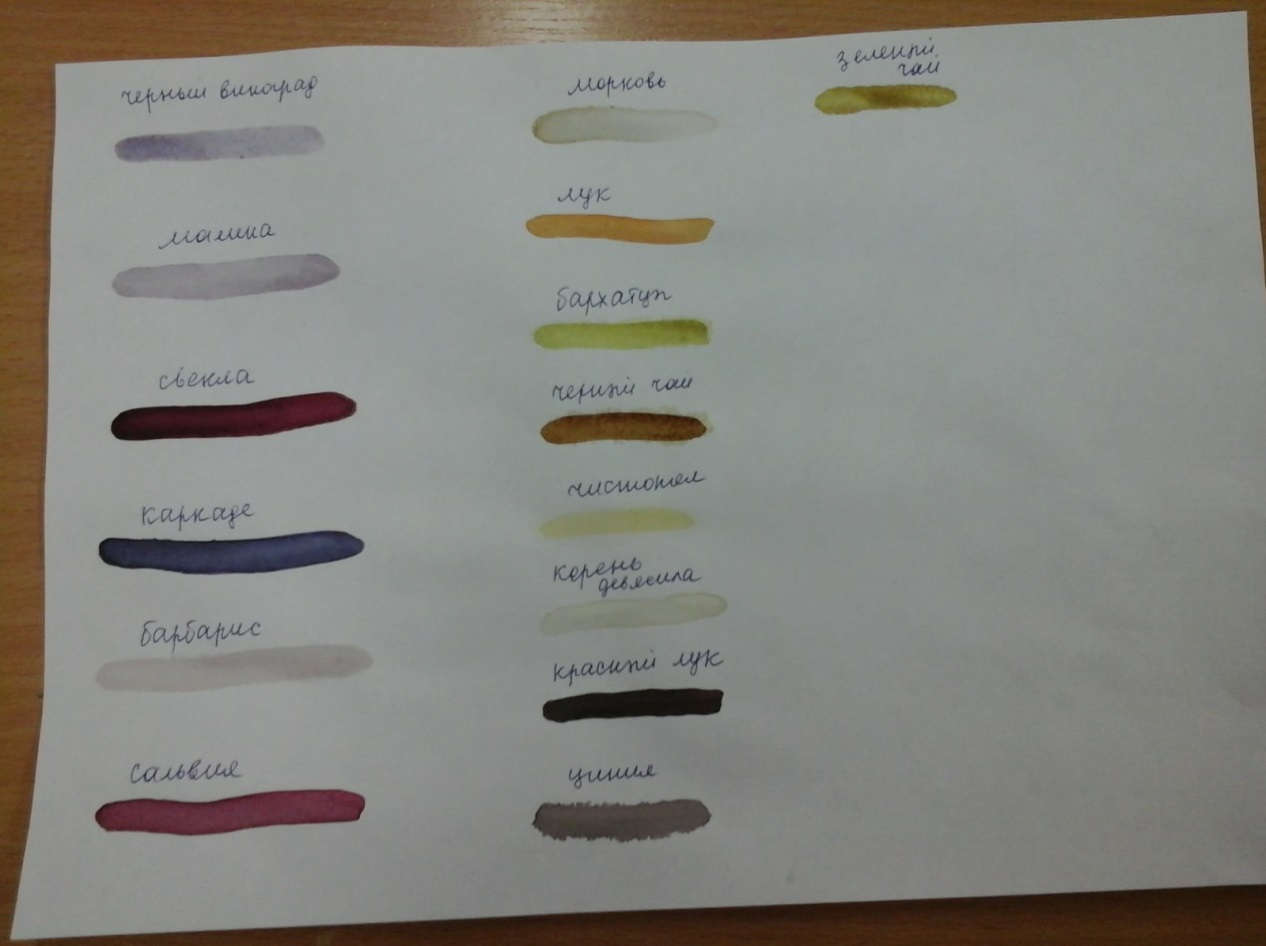 черный виноград
малина
свекла
каркаде
барбарис
сальвия
морковь
лук
бархатцы
черный чай
чистотел
корень
девясила
красный лук
циния
зеленый
чай